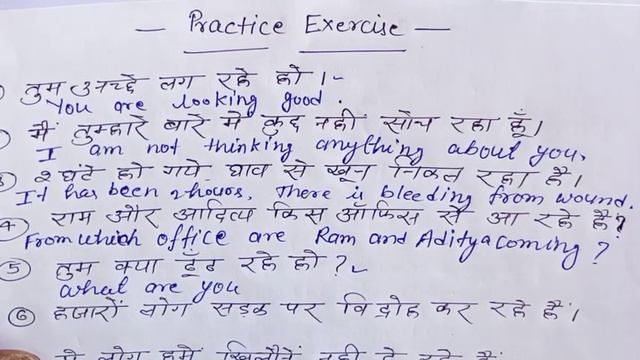 — Practice Exercise —
तुम अच्छे लग रहे हो।
You are looking good.
मैं तुम्हारे बारे मे कुछ नही सोच रहा हूँ।
I am not thinking anything about you.
③ 2 घंटे हो गये घाव से खून निकल रहा है।
It has been 2 hours, There is bleeding from wound.
④ राम और आदित्य किस ऑफिस से आ रहे हैं?
From which office are Ram and Aditya coming?
⑤ तुम क्या ढूँढ रहे हो?
what are you
⑥ हजारों लोग सड़क पर विद्रोह कर रहे हैं।
लोग हमें खिलौने नही दे रहे हैं